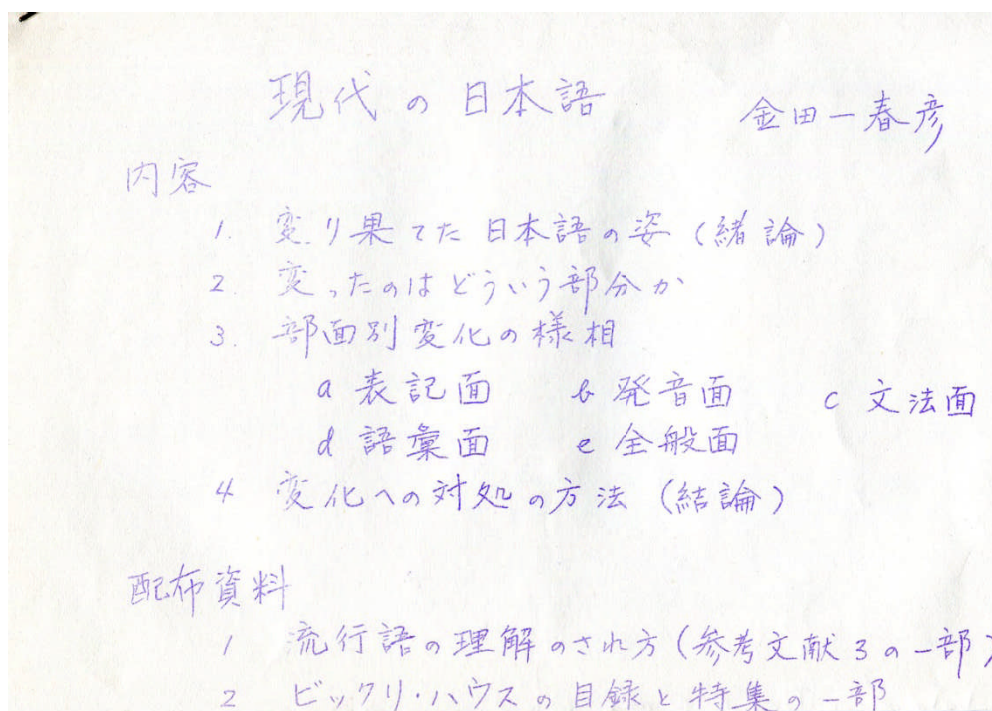 現代の日本語 金田一春彦
内容
1. 変り果てた日本語の姿(緒論)
2. 変ったのはどういう部分か
3. 部面別変化の様相
a 表記面 b 発音面 c 文法面
d 語彙面 e 全般面
4 変化への対処の方法(結論)
配布資料
1 流行語の理解のされ方(参考文献3の一部)
2 ビックリ・ハウスの目録と特集の一部